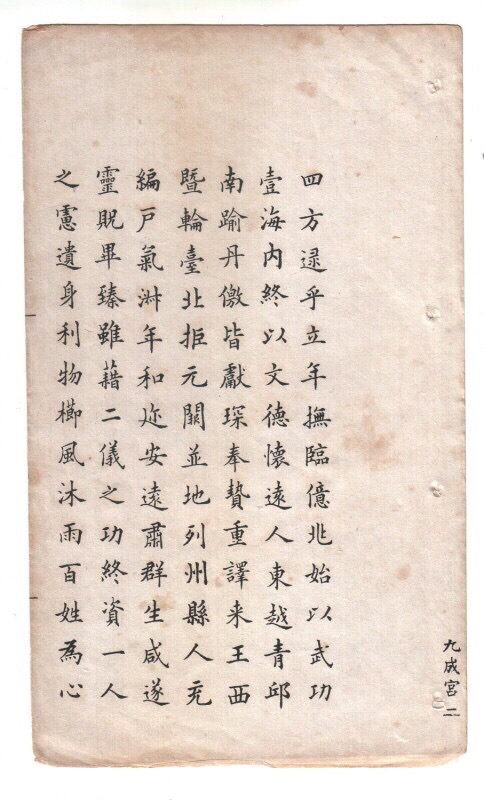 九成宮 二
四方逯乎立年撫臨億兆始以武功
壹海内終以文德懷遠人東越青邱
南踰丹儌皆獻琛奉贄重譯来王西
暨輪臺北拒元闕並地列州縣人充
編戶氣淑年和迩安遠肅群生咸遂
靈貺畢臻雖藉二儀之功終資一人
之慮遺身利物櫛風沐雨百姓為心